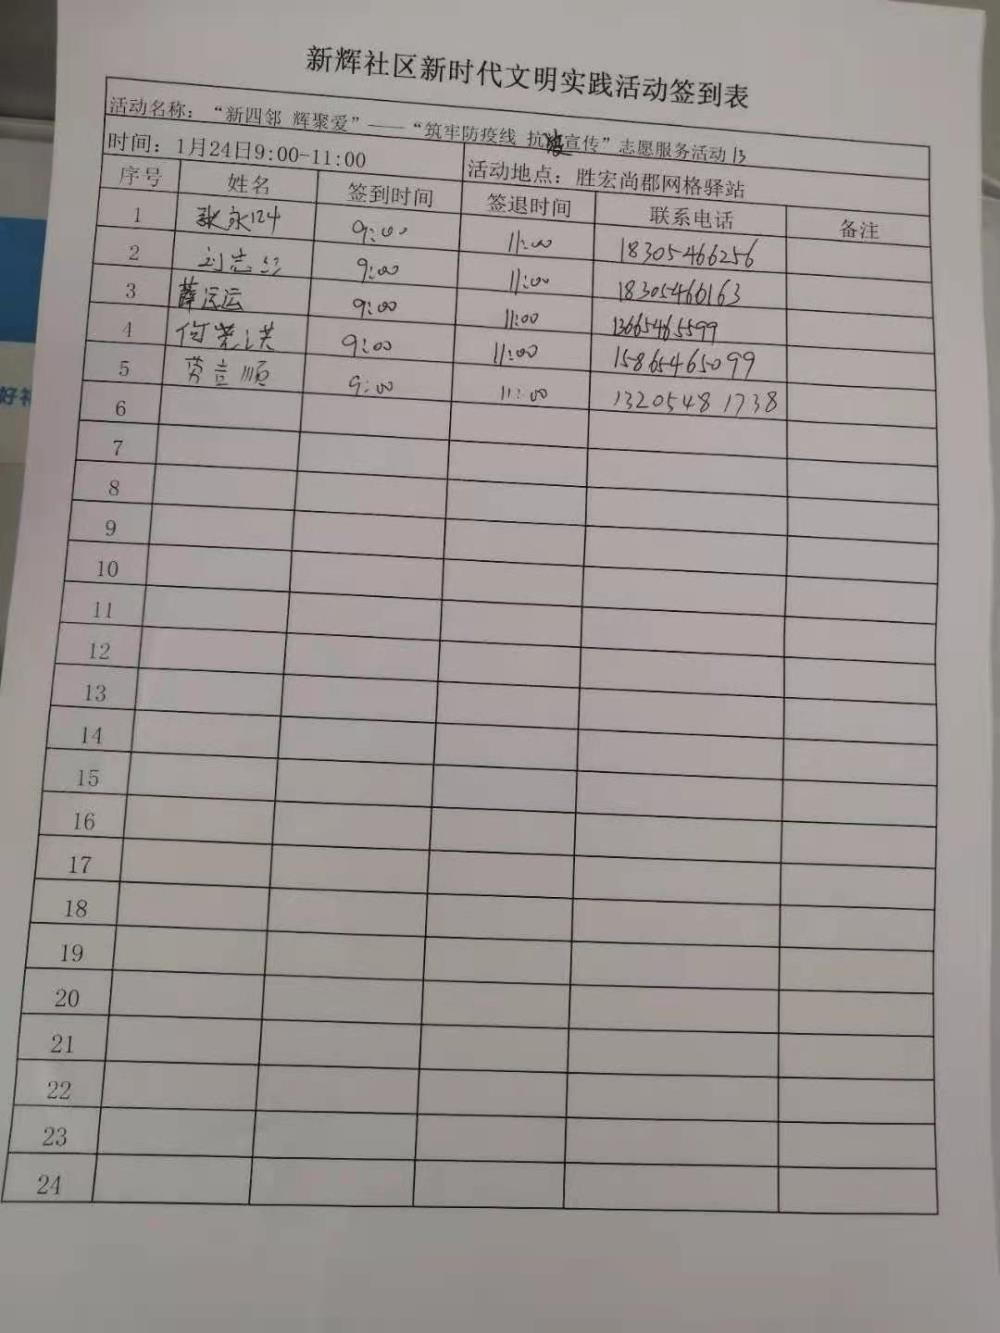 新辉社区新时代文明实践活动签到表
活动名称：“新四邻 辉聚爱”——“筑牢防疫线 抗疫宣传”志愿服务活动13
时间：1月24日9:00-11:00 活动地点：胜宏尚郡网格驿站
序号 姓名 签到时间 签退时间 联系电话 备注
1 永 9:00 11:00 18305466256
2 刘志 9:00 11:00 18305460163
3 薛运 9:00 11:00 13665465599
4 9:00 11:00 15865465099
5 劳立顺 9:00 11:00 13205481738
6
7
8
9
10
11
12
13
14
15
16
17
18
19
20
21
22
23
24
好